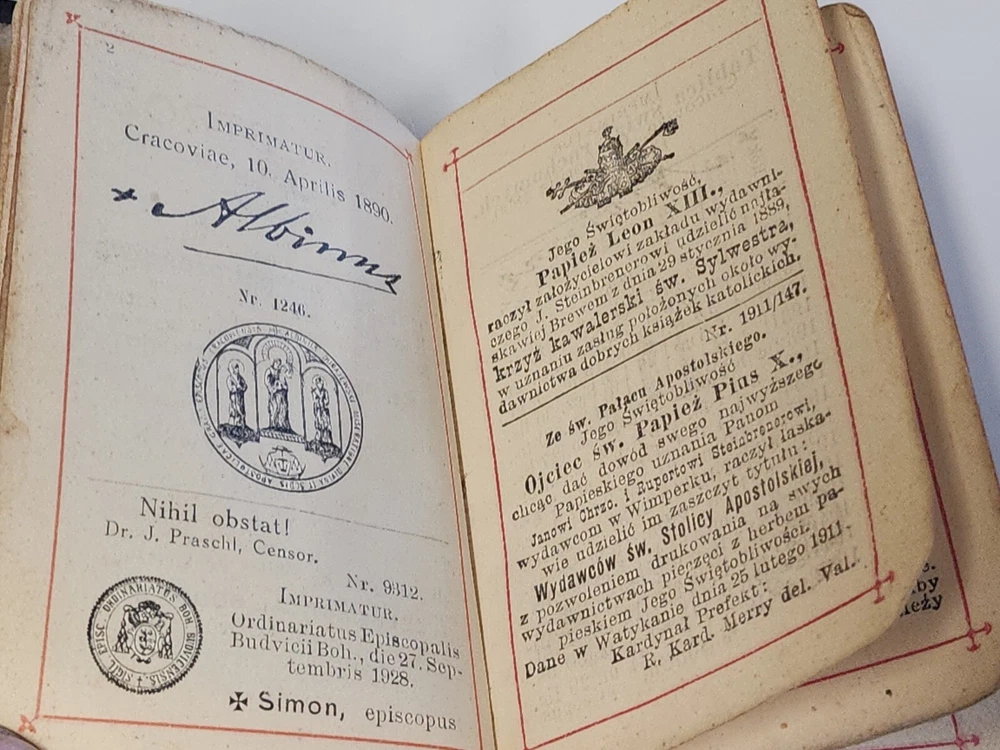 2
IMPRIMATUR.
Cracoviae, 10. Aprilis 1890.
Albinus
Nr. 1246.
Nihil obstat!
Dr. J. Praschl, Censor.
Nr. 9312.
IMPRIMATUR.
Ordinariatus Episcopalis
Budvicii Boh., die 27. Sep-
tembris 1928.
SIGIL. EPISC. ORDINARIATUS BOH. BUDVICENSIS
✠ Simon, episcopus
Jego Świętobliwość,
Papież Leon XIII.,
raczył założycielowi zakładu wydawni-
czego J. Steinbrenerowi udzielić najła-
skawiej Brewem z dnia 29 stycznia 1889,
krzyż kawalerski św. Sylwestra,
w uznaniu zasług położonych około wy-
dawnictwa dobrych książek katolickich.
Nr. 1911/147.
Ze św. Pałacu Apostolskiego.
Jego Świętobliwość
Ojciec św. Papież Pius X.,
chcąc dać dowód swego najwyższego
Papieskiego uznania Panom
Janowi Chrzc. i Rupertowi Steinbrenerowi,
wydawcom w Wimperku, raczył łaska-
wie udzielić im zaszczyt tytułu:
Wydawców św. Stolicy Apostolskiej,
z pozwoleniem drukowania na swych
wydawnictwach pieczęci z herbem pa-
pieskim Jego Świętobliwości.
Dane w Watykanie dnia 25 lutego 1911.
Kardynał Prefekt:
R. Kard. Merry del. Val.